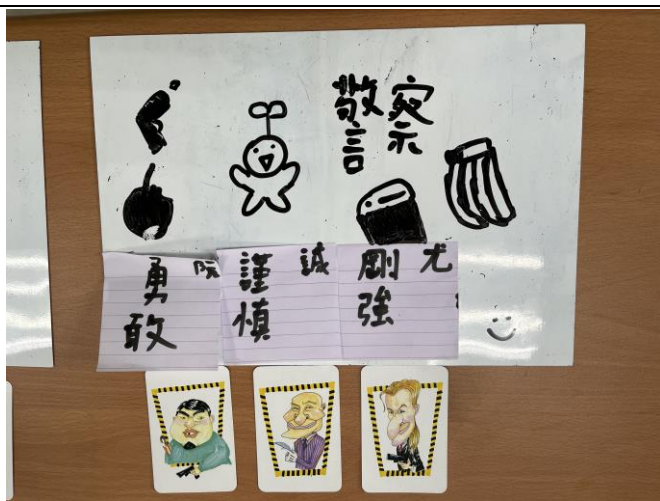 警察
勇敢
謹慎
誠
剛強
尤